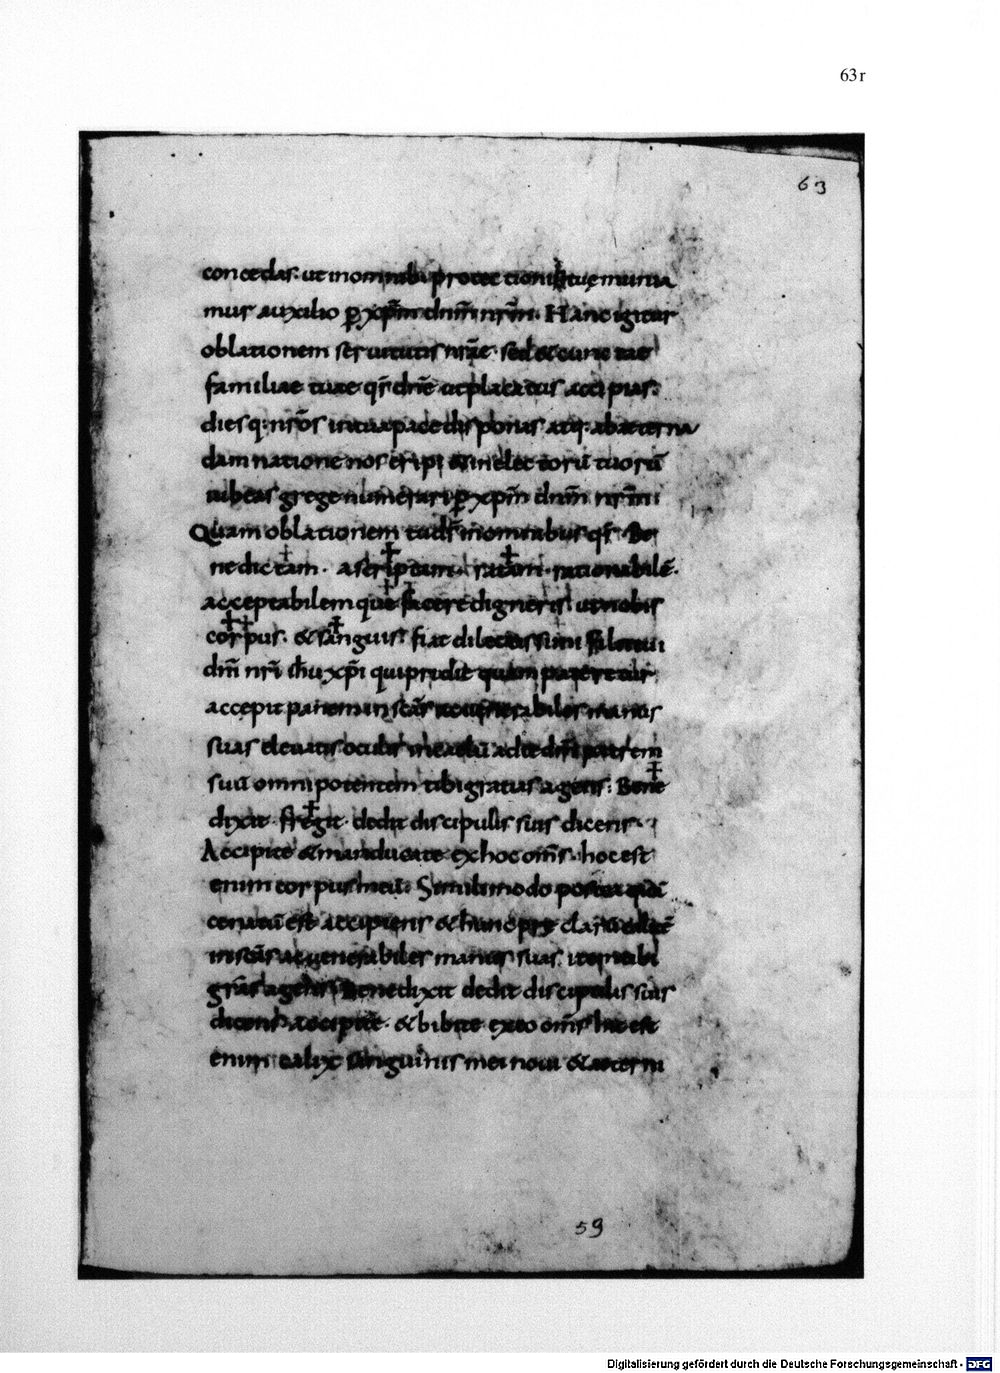 63r
63
concedas. ut inomnibus protectionis tuę munia
mus auxilio p̱ xp̄m dnm̄ nrm̄. Hanc igitur
oblationem seruitutis nrāe. sed & cunctae
familiae tuae qs̄ dnē ut placatus accipias.
dies q. nrōs in tua pace disponas atq. ab aeterna
damnatione nos eripi & in electorū tuorū
iubeas grege numerari p̱ xp̄m dnm̄ nrm̄
Quam oblationem tu ds̄ in omnibus qs̄ Be
nedictam. ascriptam. ratam. rationabilē.
acceptabilemque facere digneris. ut nobis
corpus. & sanguis. fiat dilectissimi filii tui
dnī nrī ihū xp̄i qui pridie quam pateretur
accepit panem in scās ac uenerabiles manus
suas eleuatis oculis in caelū ad te dm̄ patrem
suū omnipotentem tibi gratias agens. Bene
dixit. fregit. dedit discipulis suis dicens.
Accipite & manducate ex hoc om̄s. hoc est
enim corpus meū. Simili modo postea quā
cenatū est accipiens & hunc preclarū calicē
in scās ac uenerabiles manus suas. item tibi
grās agens Benedixit dedit discipulis suis
dicens accipite. & bibite ex eo om̄s hic est
enim calix sanguinis mei noui & aeterni
59
Digitalisierung gefördert durch die Deutsche Forschungsgemeinschaft - DFG